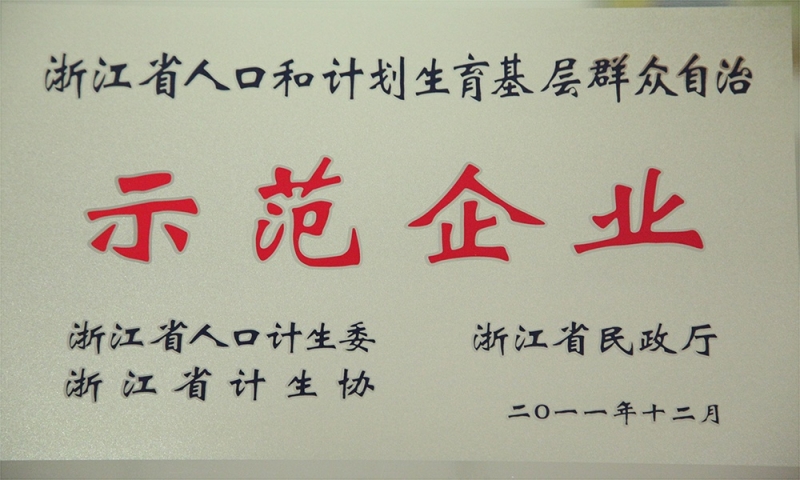 浙江省人口和计划生育基层群众自治
示范企业
浙江省人口计生委
浙江省计生协
浙江省民政厅
二〇一一年十二月